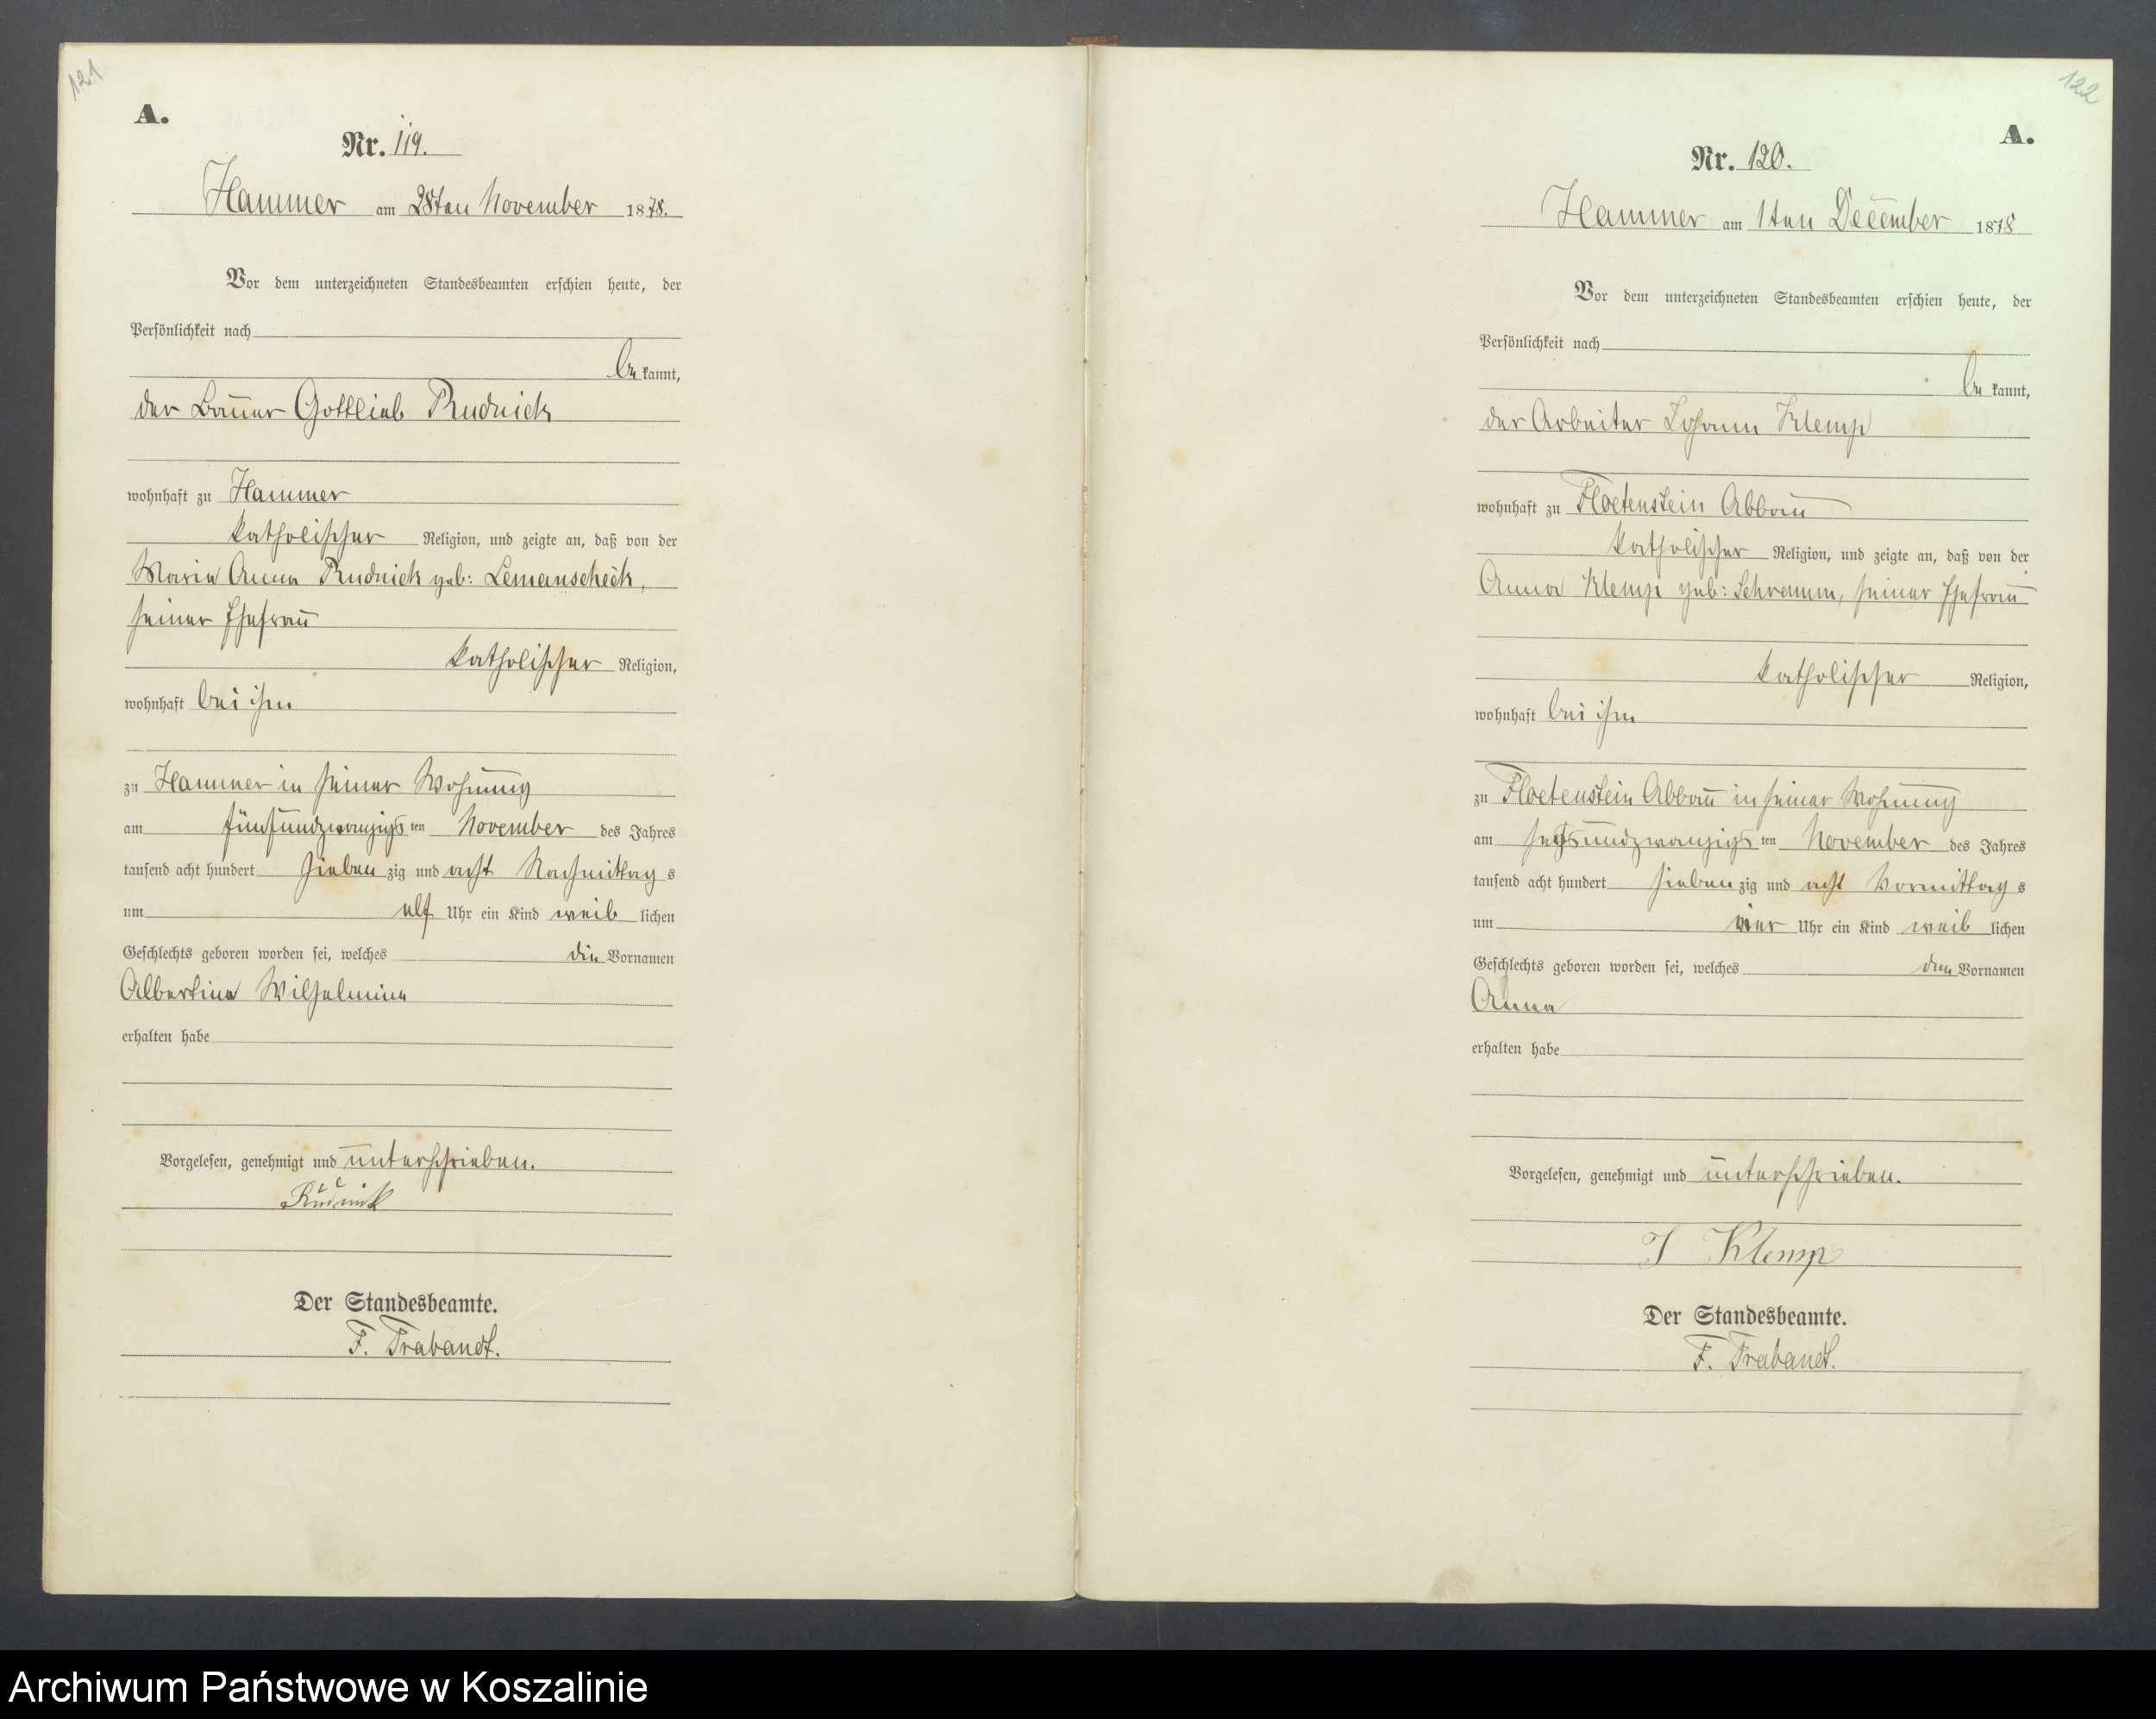 121
A.
Nr. 119.
Hammer am 28ten November 1878.
Vor dem unterzeichneten Standesbeamten erschien heute, der
Persönlichkeit nach
be kannt,
der Bauer Gottlieb Rudnick
wohnhaft zu Hammer
katholischer Religion, und zeigte an, daß von der
Maria Anna Rudnick geb: Lemanscheck,
seiner Ehefrau
katholischer Religion,
wohnhaft bei ihm
zu Hammer in seiner Wohnung
am fünfundzwanzigs ten November des Jahres
tausend acht hundert sieben zig und acht Nachmittag s
um elf Uhr ein Kind weib lichen
Geschlechts geboren worden sei, welches die Vornamen
Albertine Wilhelmine
erhalten habe
Vorgelesen, genehmigt und unterschrieben.
Rudnik
Der Standesbeamte.
F. Trabandt.
122
A.
Nr. 120.
Hammer am 1ten December 1878
Vor dem unterzeichneten Standesbeamten erschien heute, der
Persönlichkeit nach
be kannt,
der Arbeiter Johann Klemp
wohnhaft zu Floetenstein Abbau
katholischer Religion, und zeigte an, daß von der
Anna Klemp geb: Schramm, seiner Ehefrau
katholischer Religion,
wohnhaft bei ihm
zu Floetenstein Abbau in seiner Wohnung
am sechsundzwanzigs ten November des Jahres
tausend acht hundert sieben zig und acht Vormittag s
um vier Uhr ein Kind weib lichen
Geschlechts geboren worden sei, welches den Vornamen
Anna
erhalten habe
Vorgelesen, genehmigt und unterschrieben.
J Klemp
Der Standesbeamte.
F. Trabandt.
Archiwum Państwowe w Koszalinie